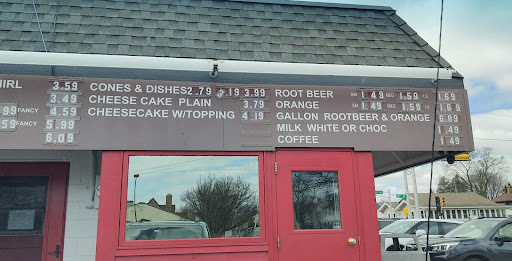 HIRL 3.59 CONES & DISHES 2.79 3.19 3.99 ROOT BEER SM 1.49 MED 1.59 LG 1.69
3.49 CHEESE CAKE PLAIN 3.79 ORANGE SM 1.49 MED 1.59 LG 1.69
.99 FANCY 4.59 CHEESECAKE W/TOPPING 4.19 GALLON ROOTBEER & ORANGE 6.89
.59 FANCY 5.99 MILK WHITE OR CHOC 1.49
6.09 COFFEE 1.49